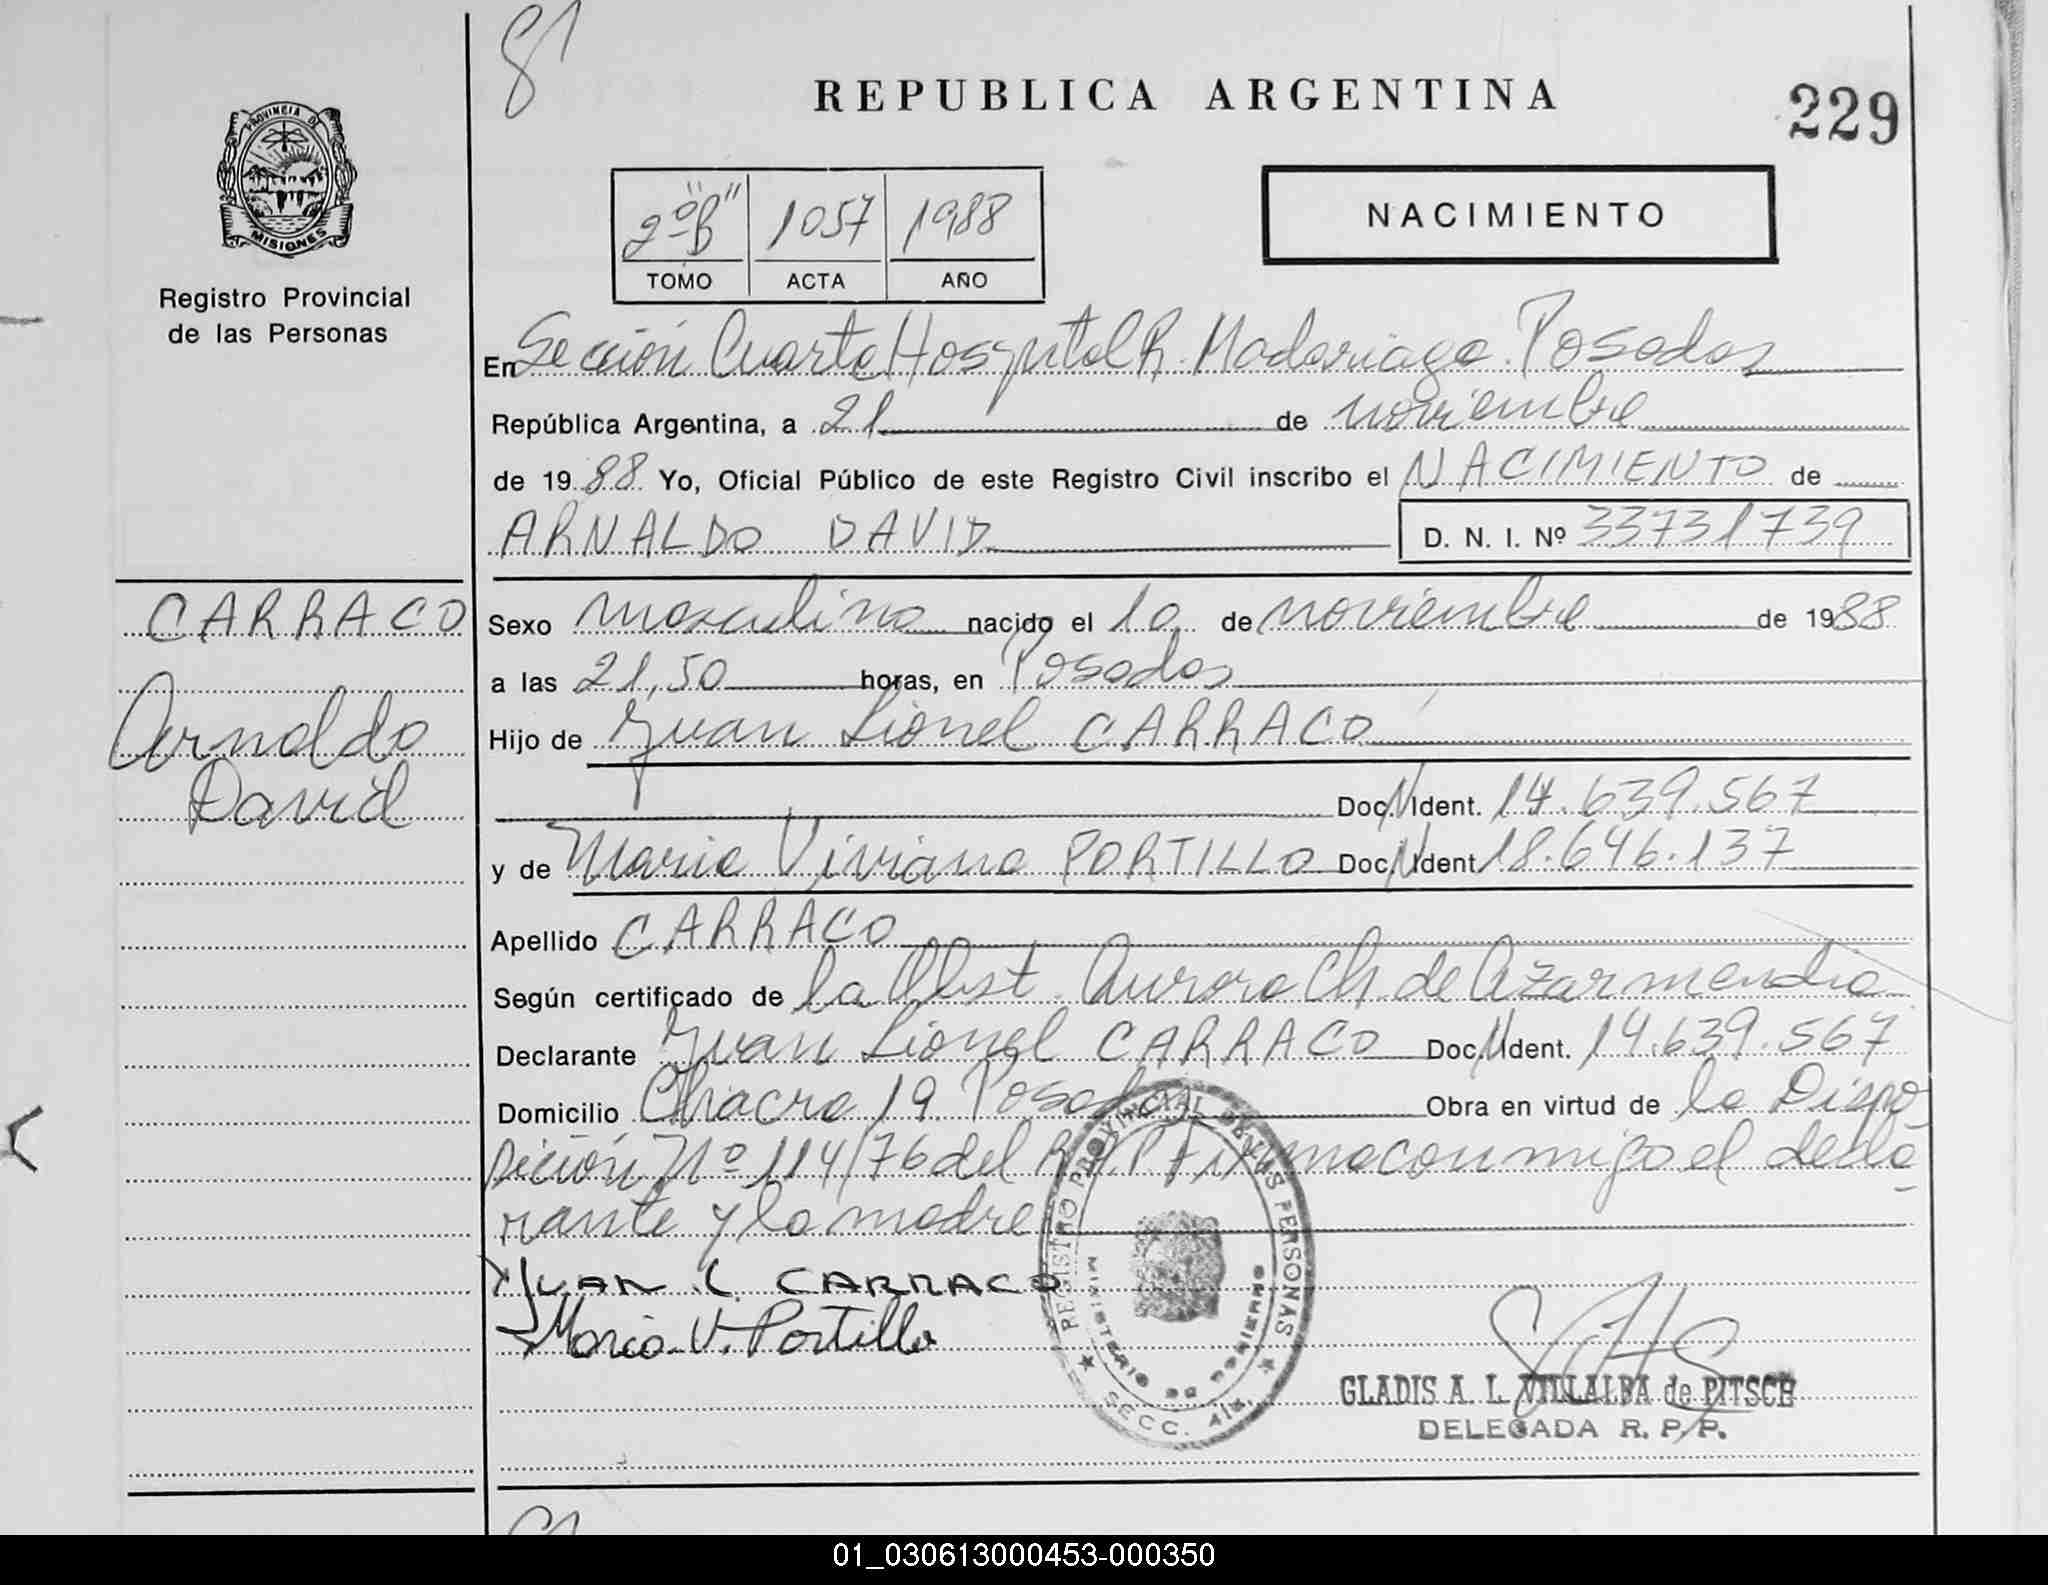 81
REPUBLICA ARGENTINA
229
PROVINCIA DE
MISIONES
Registro Provincial
de las Personas
2º "B" 1057 1988
TOMO ACTA AÑO
NACIMIENTO
En Sección Cuarta Hospital R. Madariaga. Posadas
República Argentina, a 21 de noviembre
de 1988 Yo, Oficial Público de este Registro Civil inscribo el NACIMIENTO de
ARNALDO DAVID D. N. I. Nº 33731739
CARRACO
Arnaldo
David
Sexo masculino nacido el 10 de noviembre de 1988
a las 21,50 horas, en Posadas
Hijo de Juan Lionel CARRACO
Doc. N. Ident. 14.639.567
y de Maria Viviana PORTILLO Doc. N. Ident 18.646.137
Apellido CARRACO
Según certificado de la Obst. Aurora Ch. de Azarmendia
Declarante Juan Lionel CARRACO Doc. N. Ident. 14.639.567
Domicilio Chacra 19 Posadas Obra en virtud de la Dispo
sición Nº 114/76 del R.P.P. Firma conmigo el decla
rante y la madre
JUAN L. CARRACO
Maria V. Portillo
REGISTRO PROVINCIAL DE LAS PERSONAS
MINISTERIO DE GOBIERNO
SECC. 4ta.
GLADIS A. L. VILLALBA de PITSCH
DELEGADA R. P. P.
01_030613000453-000350